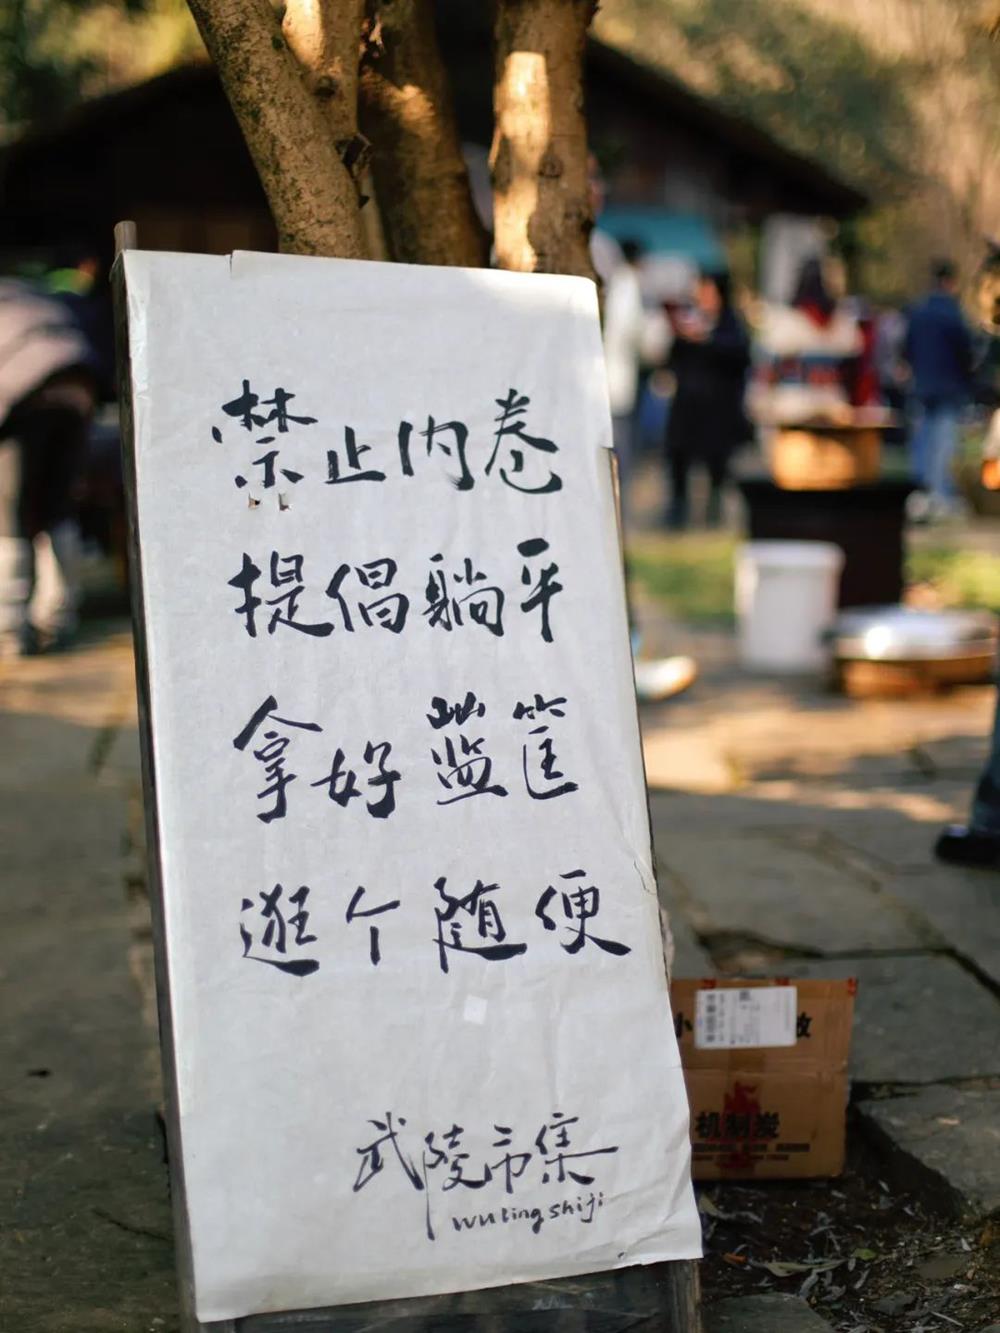 禁止内卷
提倡躺平
拿好蓝筐
逛个随便
武陵市集
wuling shiji
机制炭